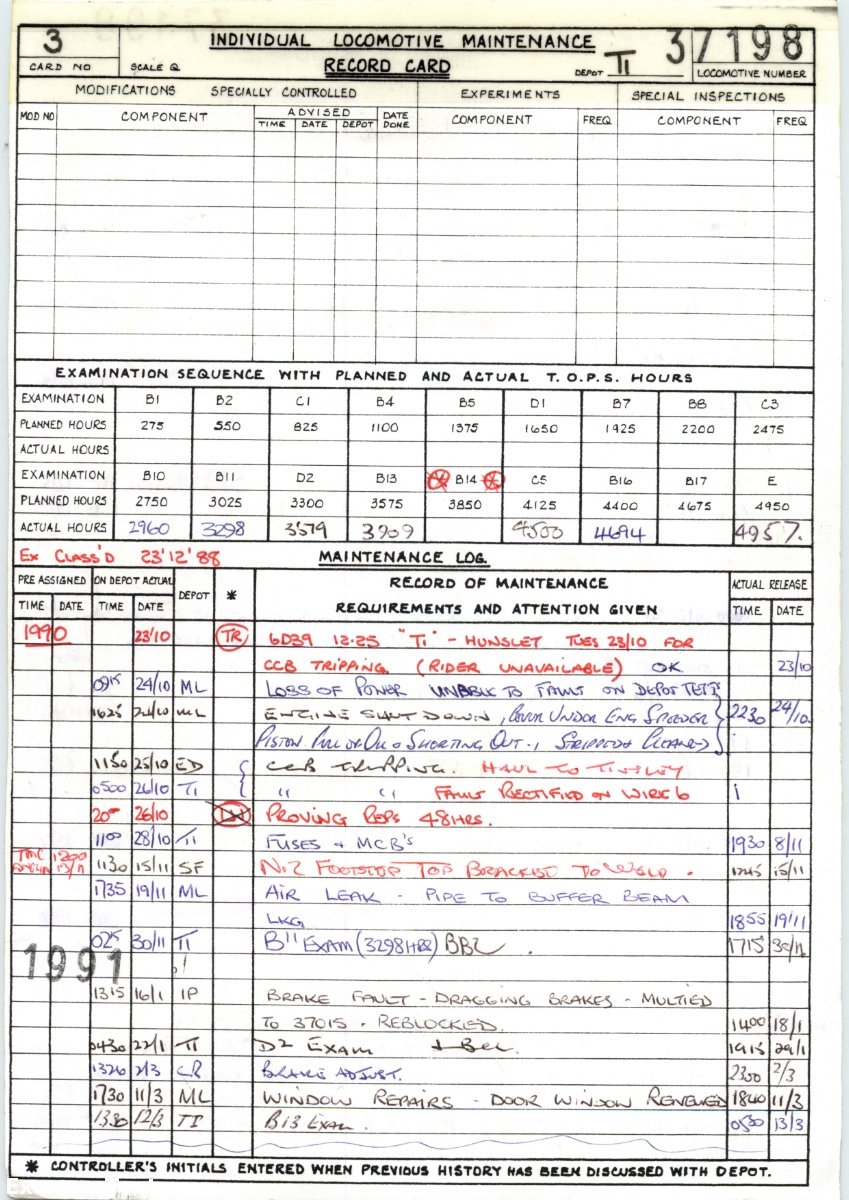 3 INDIVIDUAL LOCOMOTIVE MAINTENANCE 37198
CARD NO SCALE Q RECORD CARD DEPOT TI LOCOMOTIVE NUMBER
MODIFICATIONS SPECIALLY CONTROLLED EXPERIMENTS SPECIAL INSPECTIONS
MOD NO COMPONENT ADVISED DATE DONE COMPONENT FREQ COMPONENT FREQ
TIME DATE DEPOT
EXAMINATION SEQUENCE WITH PLANNED AND ACTUAL T.O.P.S. HOURS
EXAMINATION B1 B2 C1 B4 B5 D1 B7 B8 C3
PLANNED HOURS 275 550 825 1100 1375 1650 1925 2200 2475
ACTUAL HOURS
EXAMINATION B10 B11 D2 B13 B14 C5 B16 B17 E
PLANNED HOURS 2750 3025 3300 3575 3850 4125 4400 4675 4950
ACTUAL HOURS 2960 3298 3579 3909 4500 4694 4957.
EX CLASS'D 23'12'88 MAINTENANCE LOG.
PRE ASSIGNED ON DEPOT ACTUAL DEPOT * RECORD OF MAINTENANCE ACTUAL RELEASE
TIME DATE TIME DATE REQUIREMENTS AND ATTENTION GIVEN TIME DATE
1990 23/10 TR 6D39 12.25 "TI" - HUNSLET TUES 23/10 FOR
CCB TRIPPING (RIDER UNAVAILABLE) OK 23/10
0915 24/10 ML LOSS OF POWER UNABLE TO FAULT ON DEPOT TEST
1625 24/10 ML ENGINE SHUT DOWN, UNDER ENG SPEEDER 2230 24/10
PISTON FULL OF OIL & SHORTING OUT., STRIPPED & CLEANED
1150 25/10 ED CCB TRIPPING. HAUL TO TINSLEY
0500 26/10 TI " " FAULT RECTIFIED ON WIRE 6
20-- 26/10 PROVING REPS 48HRS.
1100 28/10 TI FUSES & MCB'S 1930 8/11
1200 13/11 1130 15/11 SF No2 FOOTSTEP TOP BRACKET TO WELD. 1245 15/11
1735 19/11 ML AIR LEAK - PIPE TO BUFFER BEAM
LKG 1855 19/11
025 30/11 TI B11 EXAM (3298 HRS) BBL. 1715 30/11
1991
1315 16/1 IP BRAKE FAULT - DRAGGING BRAKES - MULTIED
TO 37015. REBLOCKED. 1400 18/1
0430 22/1 TI D2 EXAM 1915 29/1
1320 2/3 CR BRAKE ADJUST. 2300 2/3
1730 11/3 ML WINDOW REPAIRS - DOOR WINDOW RENEWED 1840 11/3
1330 12/3 TI B13 EXAM 0530 13/3
* CONTROLLER'S INITIALS ENTERED WHEN PREVIOUS HISTORY HAS BEEN DISCUSSED WITH DEPOT.